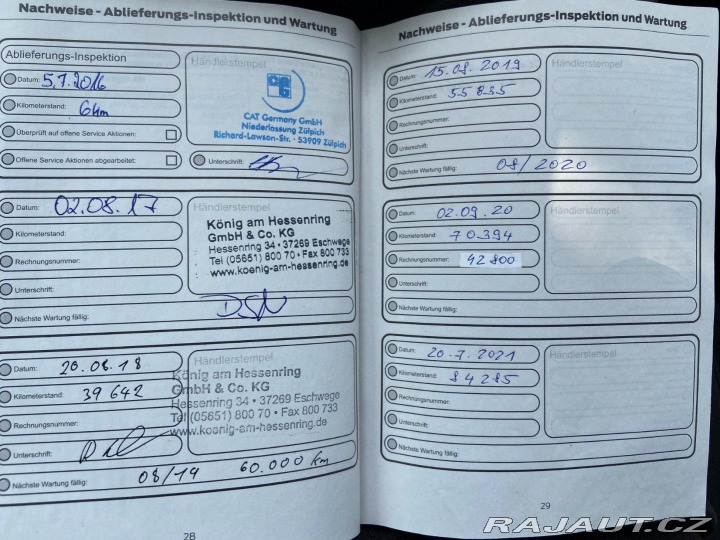 Nachweise - Ablieferungs-Inspektion und Wartung
Ablieferungs-Inspektion
Datum: 5.7.2016
Kilometerstand: 6km
Überprüft auf offene Service Aktionen:
Offene Service Aktionen abgearbeitet:
Händlerstempel
CAT Germany GmbH
Niederlassung Zülpich
Richard-Lawson-Str. · 53909 Zülpich
Unterschrift:
Datum: 02.08.17
Kilometerstand:
Rechnungsnummer:
Unterschrift:
Nächste Wartung fällig:
Händlerstempel
König am Hessenring
GmbH & Co. KG
Hessenring 34 · 37269 Eschwege
Tel (05651) 800 70 · Fax 800 733
www.koenig-am-hessenring.de
Datum: 20.08.18
Kilometerstand: 39 642
Rechnungsnummer:
Unterschrift:
Nächste Wartung fällig: 08/19 60.000 km
Händlerstempel
König am Hessenring
GmbH & Co. KG
Hessenring 34 · 37269 Eschwege
Tel (05651) 800 70 · Fax 800 733
www.koenig-am-hessenring.de
28
Nachweise - Ablieferungs-Inspektion und Wartung
Datum: 15.08.2019
Kilometerstand: 55835
Rechnungsnummer:
Unterschrift:
Nächste Wartung fällig: 08/2020
Händlerstempel
Datum: 02.09.20
Kilometerstand: 70394
Rechnungsnummer: 42800
Unterschrift:
Nächste Wartung fällig:
Händlerstempel
Datum: 20.7.2021
Kilometerstand: 84285
Rechnungsnummer:
Unterschrift:
Nächste Wartung fällig:
Händlerstempel
29
RAJAUT.CZ